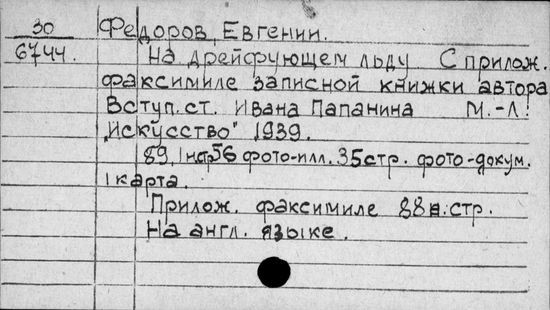 30
6744.
Федоров, Евгении.
На дрейфующем льду С прилож.
факсимиле записной книжки автора
Вступ.ст. Ивана Папанина М.-Л.:
„Искусство" 1939.
89, 56 фото-илл. 35стр. фото-докум.
1 карта.
Прилож. факсимиле 88 стр.
На англ. языке.